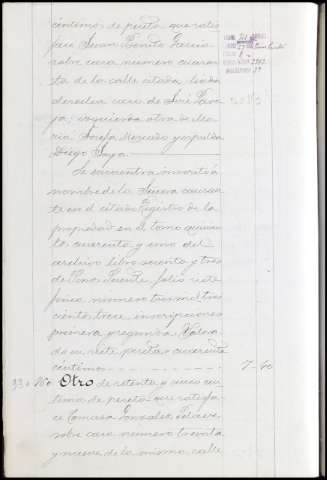 céntimos de peseta que satis
face Juan Benito García
sobre casa número cuaren
ta de la calle citada linda
derecha casa de José
izquierda otra de Ma
ría Josefa Mercado y espalda
Diego
Se encuentra inscrito á
nombre de la Señora causan
te en el citado Registro de la
propiedad en el tomo quinien
tos cuarenta y uno del
archivo libro sesenta y tres
de folio siete
finca número tres mil tres
cientos trece, inscripciones
primera y segunda. Valora
do en siete pesetas cuarenta
céntimos 7-40
33 Otro de setenta y cinco cen
timos de peseta que satisfa
ce Tomasa Gonzalez
sobre casa número treinta
y nueve de la misma calle